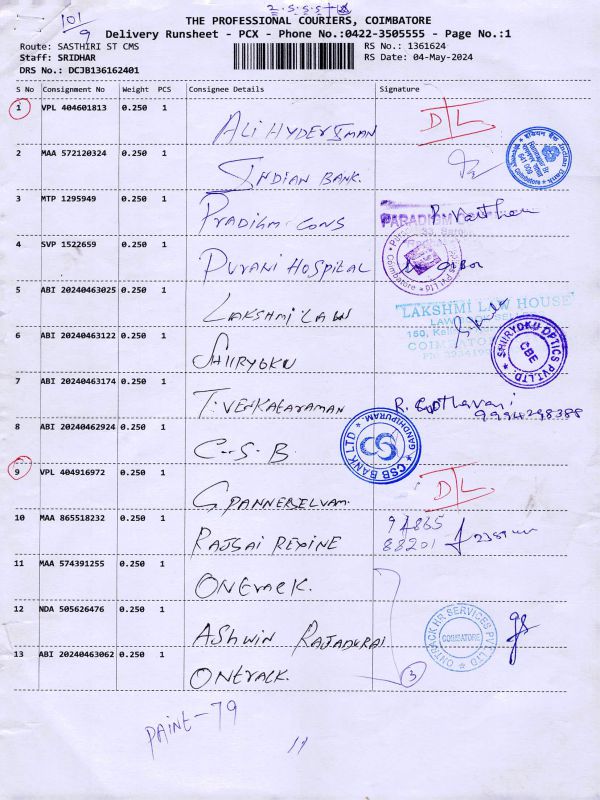 101
9
THE PROFESSIONAL COURIERS, COIMBATORE
Delivery Runsheet - PCX - Phone No.:0422-3505555 - Page No.:1
Route: SASTHIRI ST CMS
RS No.: 1361624
Staff: SRIDHAR
RS Date: 04-May-2024
DRS No.: DCJB136162401
S No Consignment No Weight PCS Consignee Details Signature
1 VPL 404601813 0.250 1 DTL
ALI HYDER
2 MAA 572120324 0.250 1
INDIAN BANK.
3 MTP 1295949 0.250 1
PRADIGM CONS
4 SVP 1522659 0.250 1
PURANI HOSPITAL
5 ABI 20240463025 0.250 1
LAKSHMI LAW
LAKSHMI LAW HOUSE
6 ABI 20240463122 0.250 1
SHURYOKU
SHURYOKU OPTICS PVT.LTD
CBE
7 ABI 20240463174 0.250 1
T. VENKATARAMAN
9994298388
8 ABI 20240462924 0.250 1
C-S-B
CSB BANK LTD
GANDHIPURAM
9 VPL 404916972 0.250 1 DTL
G. PANNERSELVAM.
10 MAA 865518232 0.250 1
RAJSAI REXINE
94865
88201
11 MAA 574391255 0.250 1
ONTRACK.
12 NDA 505626476 0.250 1
ASHWIN RAJADURAI
ONTRACK HR SERVICES PVT. LTD
COIMBATORE
13 ABI 20240463062 0.250 1
ONTRACK.
3
PAINT-79
11